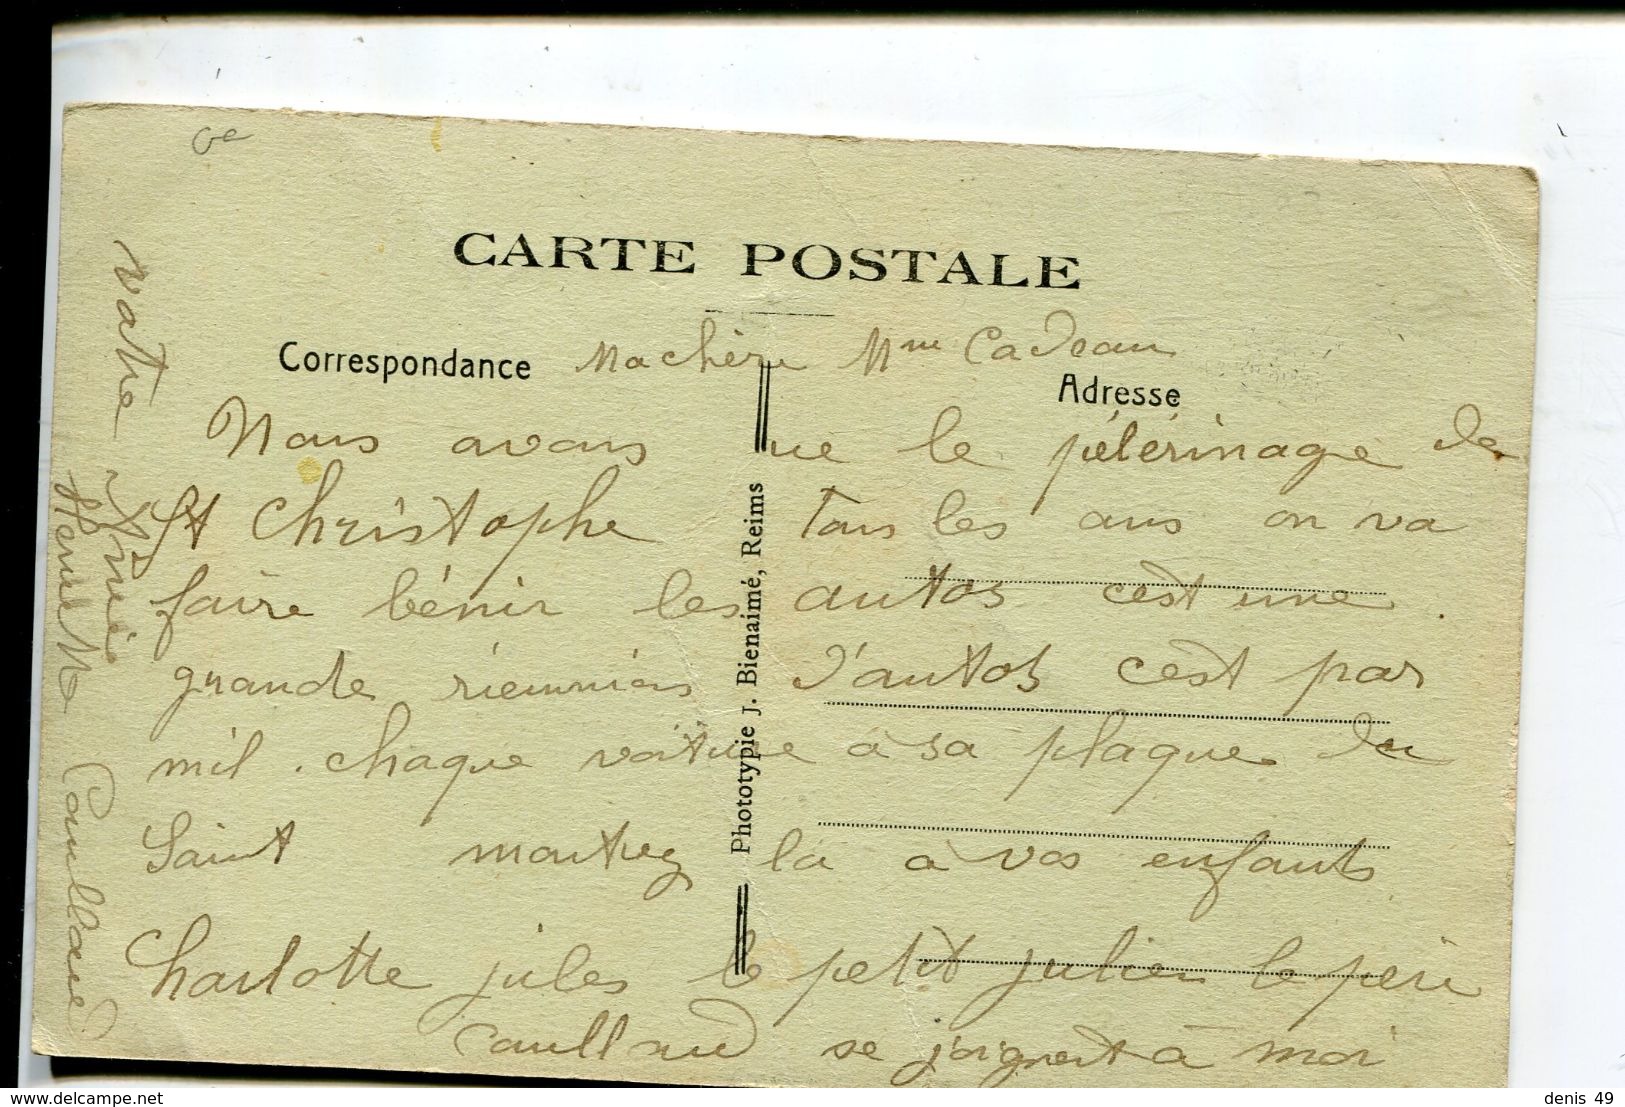 CARTE POSTALE
Correspondance
Adresse
Ma chère Mme Cadeau
Nous avons vue le pélérinage de
St Christophe Tous les ans on va
faire bénir les autos c'est une
grande d'autos c'est par
mil. chaque voiture à sa plaque du
Saint montrez la à vos enfants
Charlotte jules le petit julien le père
Caulland se joignent à moi
Votre Amie
Caulland
Phototypie J. Bienaimé, Reims
delcampe.net
denis_49